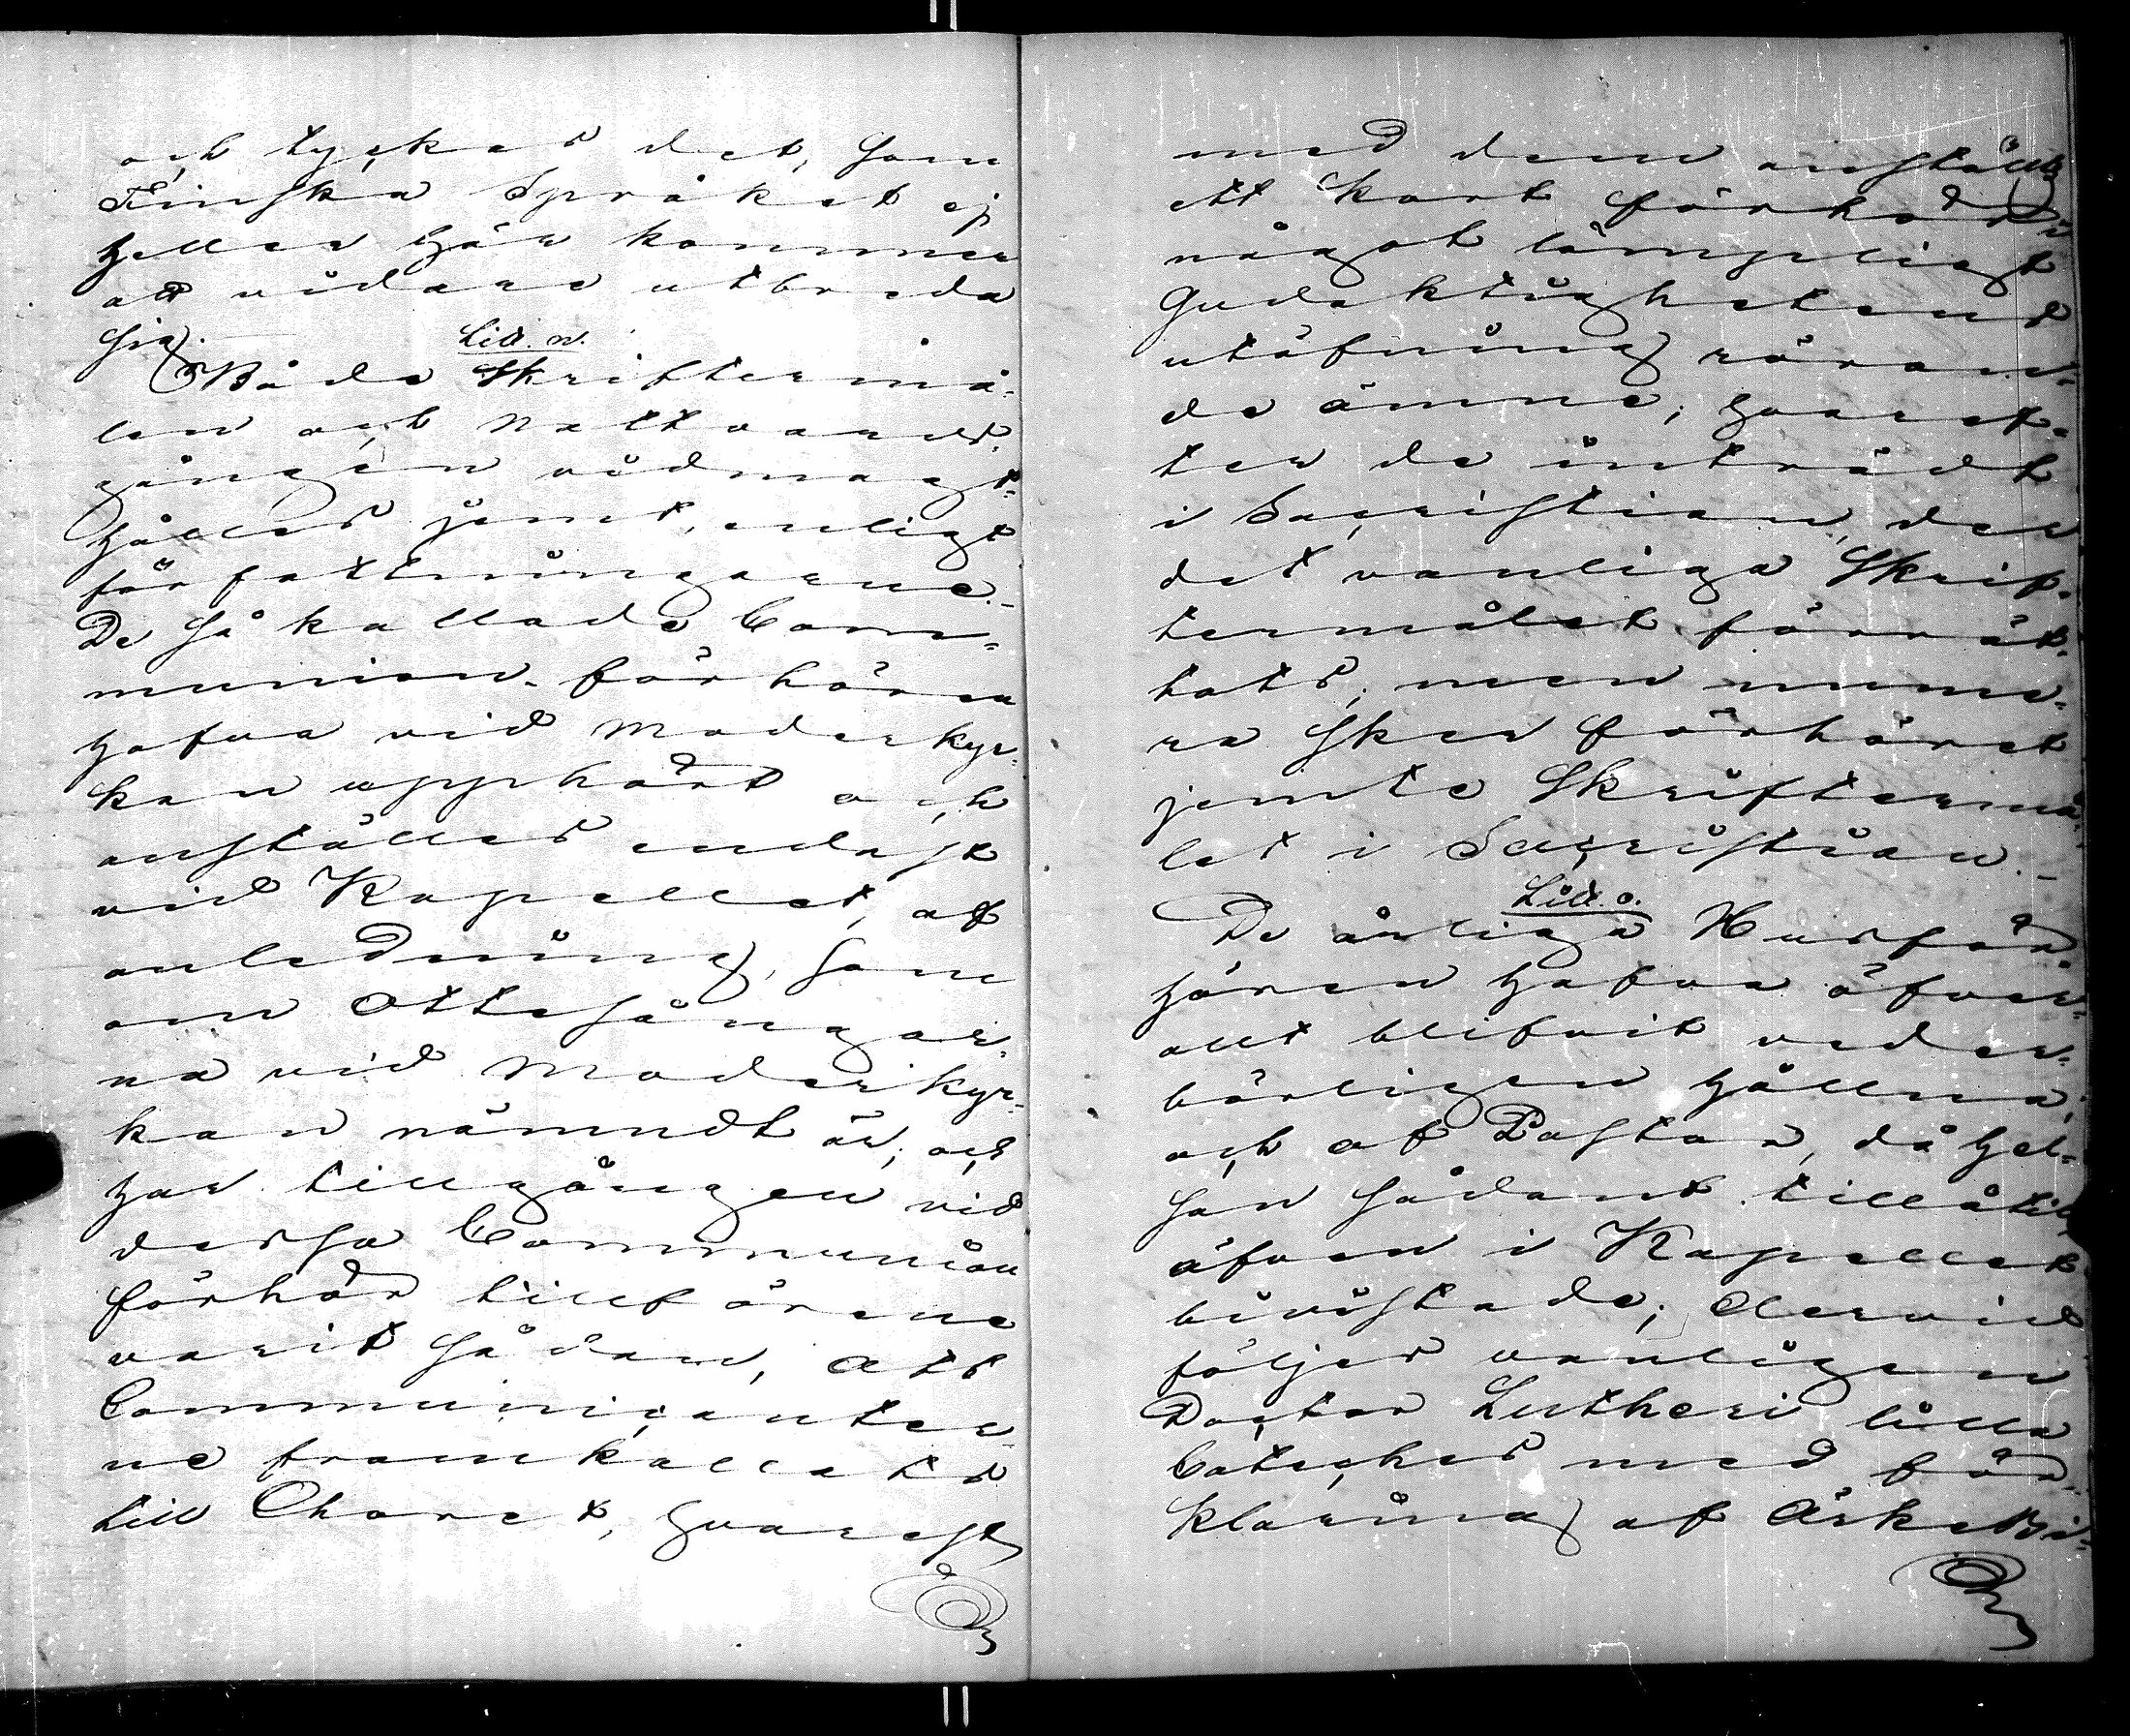 och tyckes det, som
Finska Språket ej
heller här kommer
att vidare utbreda
sig.
Litt. n.
Både Skriftermå-
len och Nattvards-
gången vidmagt-
hålles jemt, enligt
författningarne.-
De så kallade Com-
munion-förhören
hafva vid Moderkyr-
kan upphört och
anställes endast
vid Kapellet, af
anledning, som
om Ottesångar-
na vid Moderkyr-
kan nämndt är; och
har tillgången vid
dessa Communion
förhör tillförene
varit sådan, att
Communicanter-
ne framkallats
till Choret, hvarest
med dem anställts
ett kort förhör i
något lämpligt
Gudaktighetens
utöfning röran-
de ämne; hvaref-
ter de inträdt
i Sacristian, der
det vanliga Skrif-
termålet förrät-
tats; men nume-
ra sker förhöret
jemte Skriftermå-
let i Sacristian.-
Litt. o.
De årliga Husför-
hören hafva öfver-
allt blifvit veder-
börligen hållna;
och af Pastor, då hel-
san sådant tillåtit,
äfven i Kapellet
bivistade; dervid
följes vanligen
Doctor Lutheri lilla
Cateches med för-
klaring af ArkeBi-